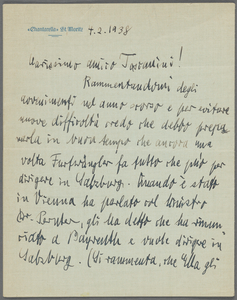 «Chantarella» St. Moritz 4.2.1938
Carissimo amico Toscanini!
Rammentandomi degli
avvenimenti nel anno scorso e per evitare
nuove difficoltà credo che debbo preve
nirla in buon tempo che ancora una
volta Furtwängler fa tutto che può per
dirigere in Salzburg. Quando è stato
in Vienna ha parlato col Ministro
Dr. Pernter, gli ha detto che ha rinun
ciato a Bayreuth e vuole dirigere in
Salzburg. (Si rammenta, che Ella gli